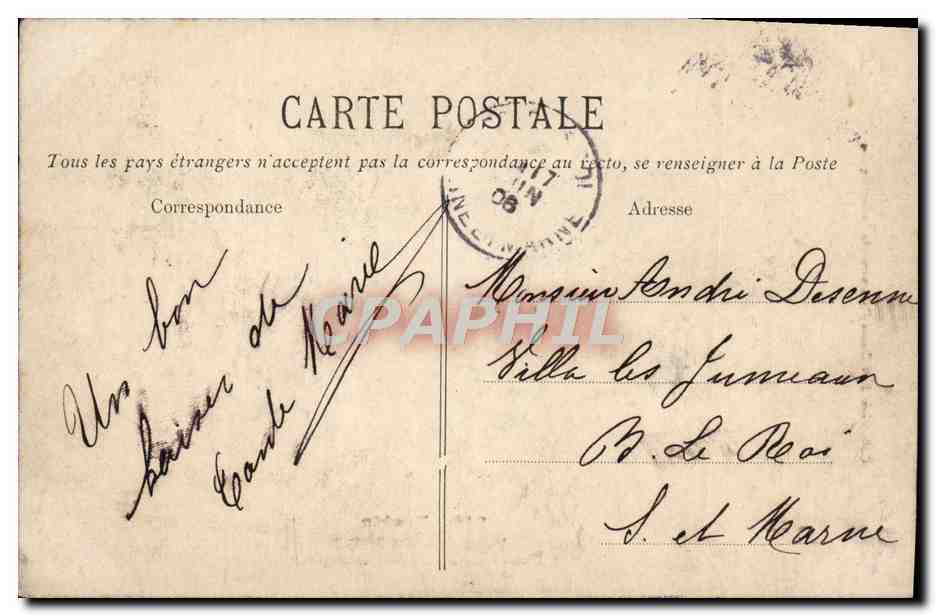 CARTE POSTALE
Tous les pays étrangers n'acceptent pas la correspondance au recto, se renseigner à la Poste
Correspondance
Adresse
Un bon
baiser de
Tante Marie
Monsieur André Desenne
Villa les Jumeaux
B. Le Roi
S. et Marne
17
JUIN
06
SEINE ET MARNE
CPAPHIL